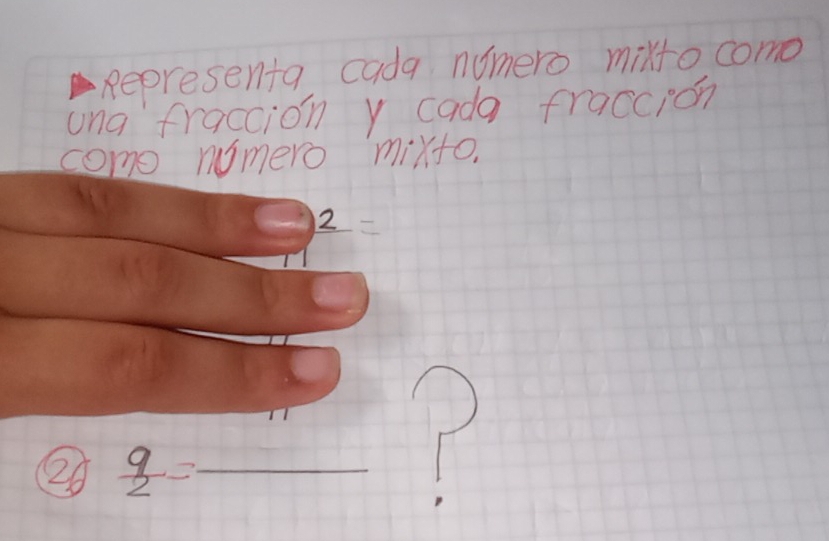 Representa cada número mixto como
una fracción y cada fracción
como número mixto.
2 =
26 9/2 = ?